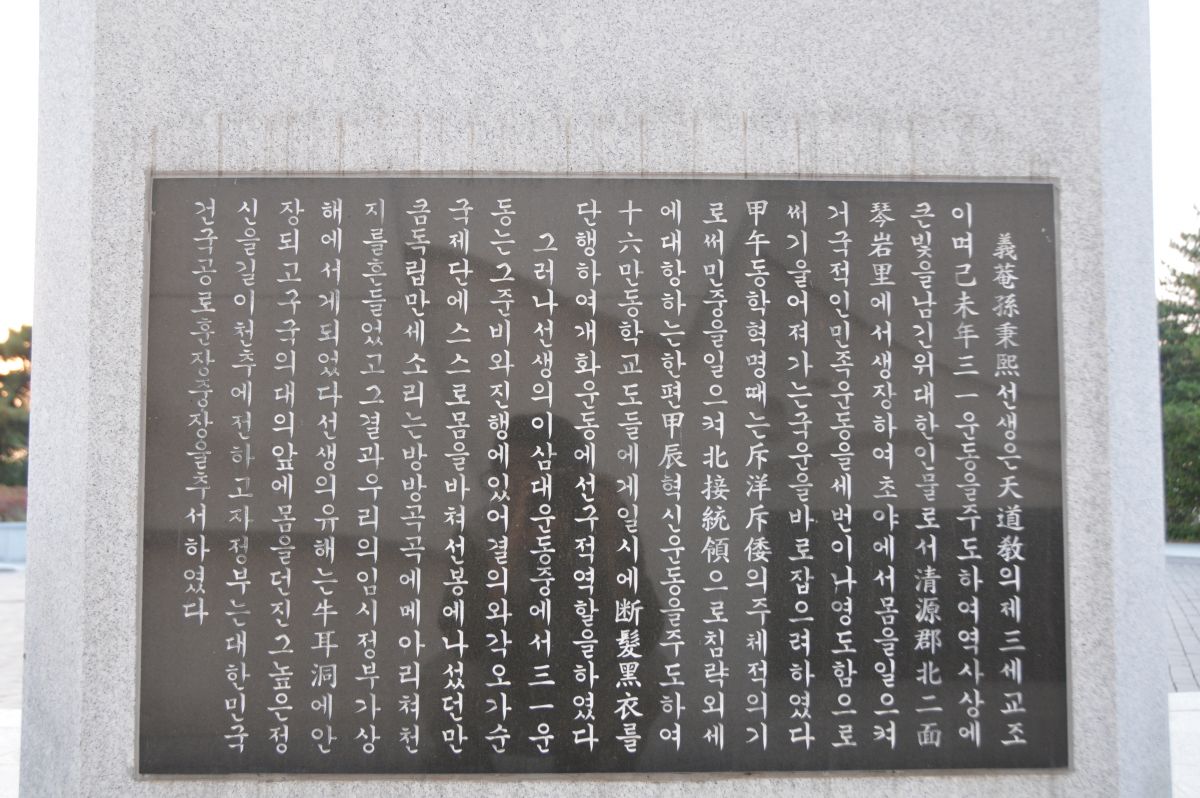 義菴孫秉熙선생은天道敎의제三세교조
이며己未年三一운동을주도하여역사상에
큰빛을남긴위대한인물로서清源郡北二面
琴岩里에서생장하여초야에서몸을일으켜
거국적인민족운동을세번이나영도함으로
써기울어져가는국운을바로잡으려하였다
甲午동학혁명때는斥洋斥倭의주체적의기
로써민중을일으켜北接統領으로침략외세
에대항하는한편甲辰혁신운동을주도하여
十六만동학교도들에게일시에断髮黑衣를
단행하여개화운동에선구적역할을하였다
그러나선생의이삼대운동중에서三一운
동는그준비와진행에있어결의와각오가순
국제단에스스로몸을바쳐선봉에나섰던만
큼독립만세소리는방방곡곡에메아리쳐천
지를흔들었고그결과우리의임시정부가상
해에서게되었다선생의유해는牛耳洞에안
장되고구국의대의앞에몸을던진그높은정
신을길이천추에전하고자정부는대한민국
건국공로훈장중장을추서하였다